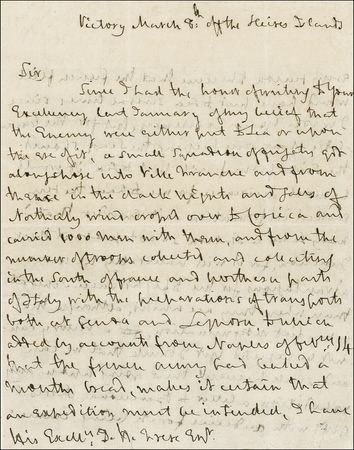 Victory March 8th off the Hieres Islands
Sir
Since I had the honor of writing to your
Excellency last January of my belief that
the Enemy were either put to Sea or upon
the eve of it, a small Squadron of frigates got
alongshore into Ville Franche and from
thence in the dark nights and gales of
Northerly wind cropt over to Corsica and
carried 1000 men with them, and from the
number of troops collected and collecting
in the South of france and northern parts
of Italy with the preparations of transports
both at Genoa and Leghorn to which
added by accounts from Naples of 14
that the french army had baked a
months bread, makes it certain that
an expedition must be intended, I have
His Excelly